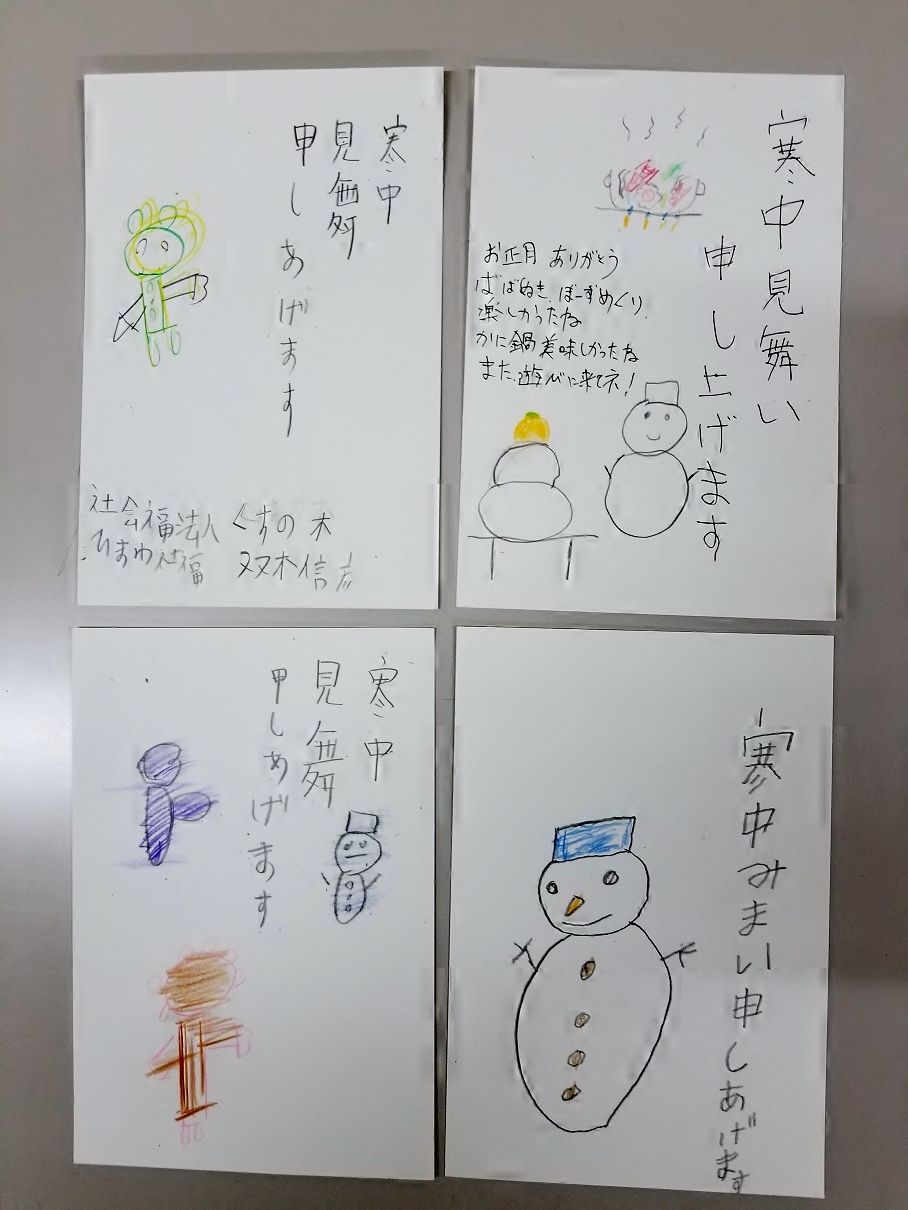 寒中
見舞
申しあげます
社会福法人くすの木
ひまわ社福 双木信彦
寒中見舞い
申し上げます
お正月ありがとう
ばばぬき、ぼーずめくり、
楽しかったね
かに鍋美味しかったね
また、遊びに来てネ!
寒中
見舞
申しあげます
寒中みまい申しあげます